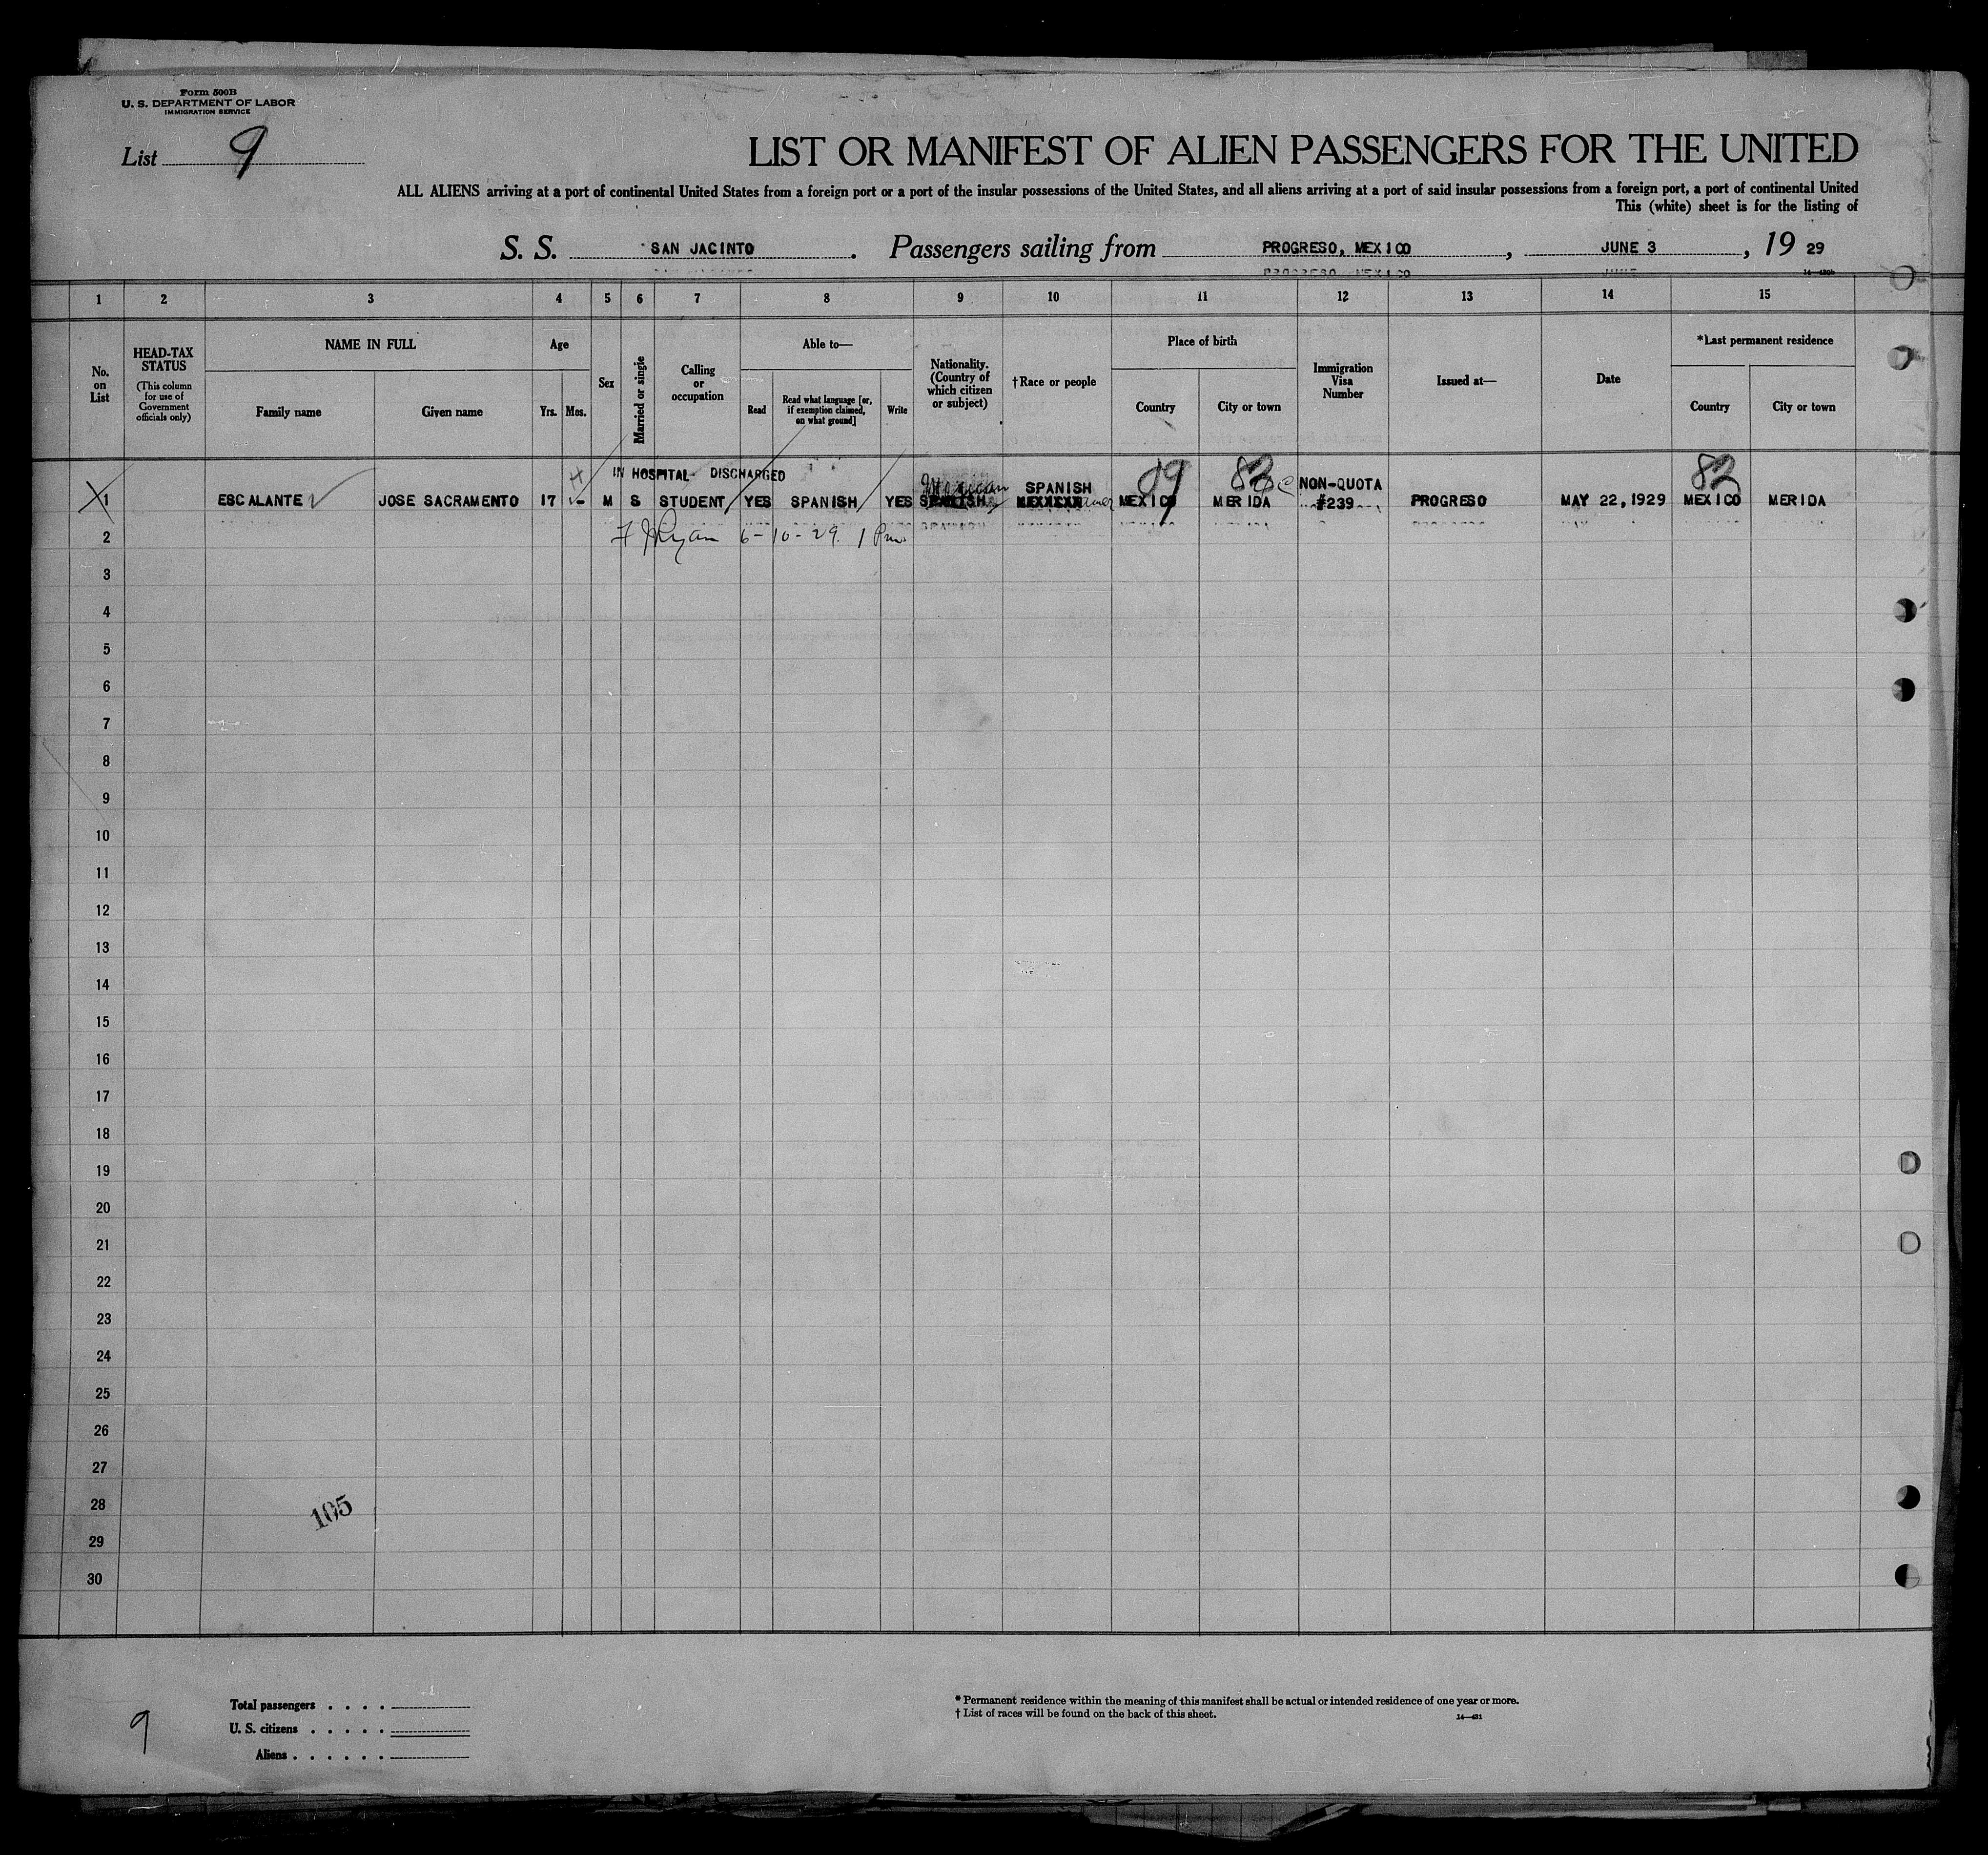 Form 500B
U. S. DEPARTMENT OF LABOR
IMMIGRATION SERVICE
List 9
LIST OR MANIFEST OF ALIEN PASSENGERS FOR THE UNITED
ALL ALIENS arriving at a port of continental United States from a foreign port or a port of the insular possessions of the United States, and all aliens arriving at a port of said insular possessions from a foreign port, a port of continental United
This (white) sheet is for the listing of
S. S. SAN JACINTO. Passengers sailing from PROGRESO, MEXICO, JUNE 3, 19 29
1 2 3 4 5 6 7 8 9 10 11 12 13 14 15
No. on List
HEAD-TAX STATUS (This column for use of Government officials only)
NAME IN FULL
Family name
Given name
Age
Yrs.
Mos.
Sex
Married or single
Calling or occupation
Able to—
Read
Read what language [or, if exemption claimed, on what ground]
Write
Nationality. (Country of which citizen or subject)
†Race or people
Place of birth
Country
City or town
Immigration Visa Number
Issued at—
Date
*Last permanent residence
Country
City or town
IN HOSPITAL DISCHARGED
1 ESCALANTE JOSE SACRAMENTO 17 - M S STUDENT YES SPANISH YES Mexican SPANISH MEXICO MERIDA NON-QUOTA #239 PROGRESO MAY 22, 1929 MEXICO MERIDA
09 82 82
2 F J Ryan 6-10-29. 1 Pm
3
4
5
6
7
8
9
10
11
12
13
14
15
16
17
18
19
20
21
22
23
24
25
26
27
28
29
30
105
9
Total passengers . . . .
U. S. citizens . . . . .
Aliens . . . . . .
* Permanent residence within the meaning of this manifest shall be actual or intended residence of one year or more.
† List of races will be found on the back of this sheet.
14—431